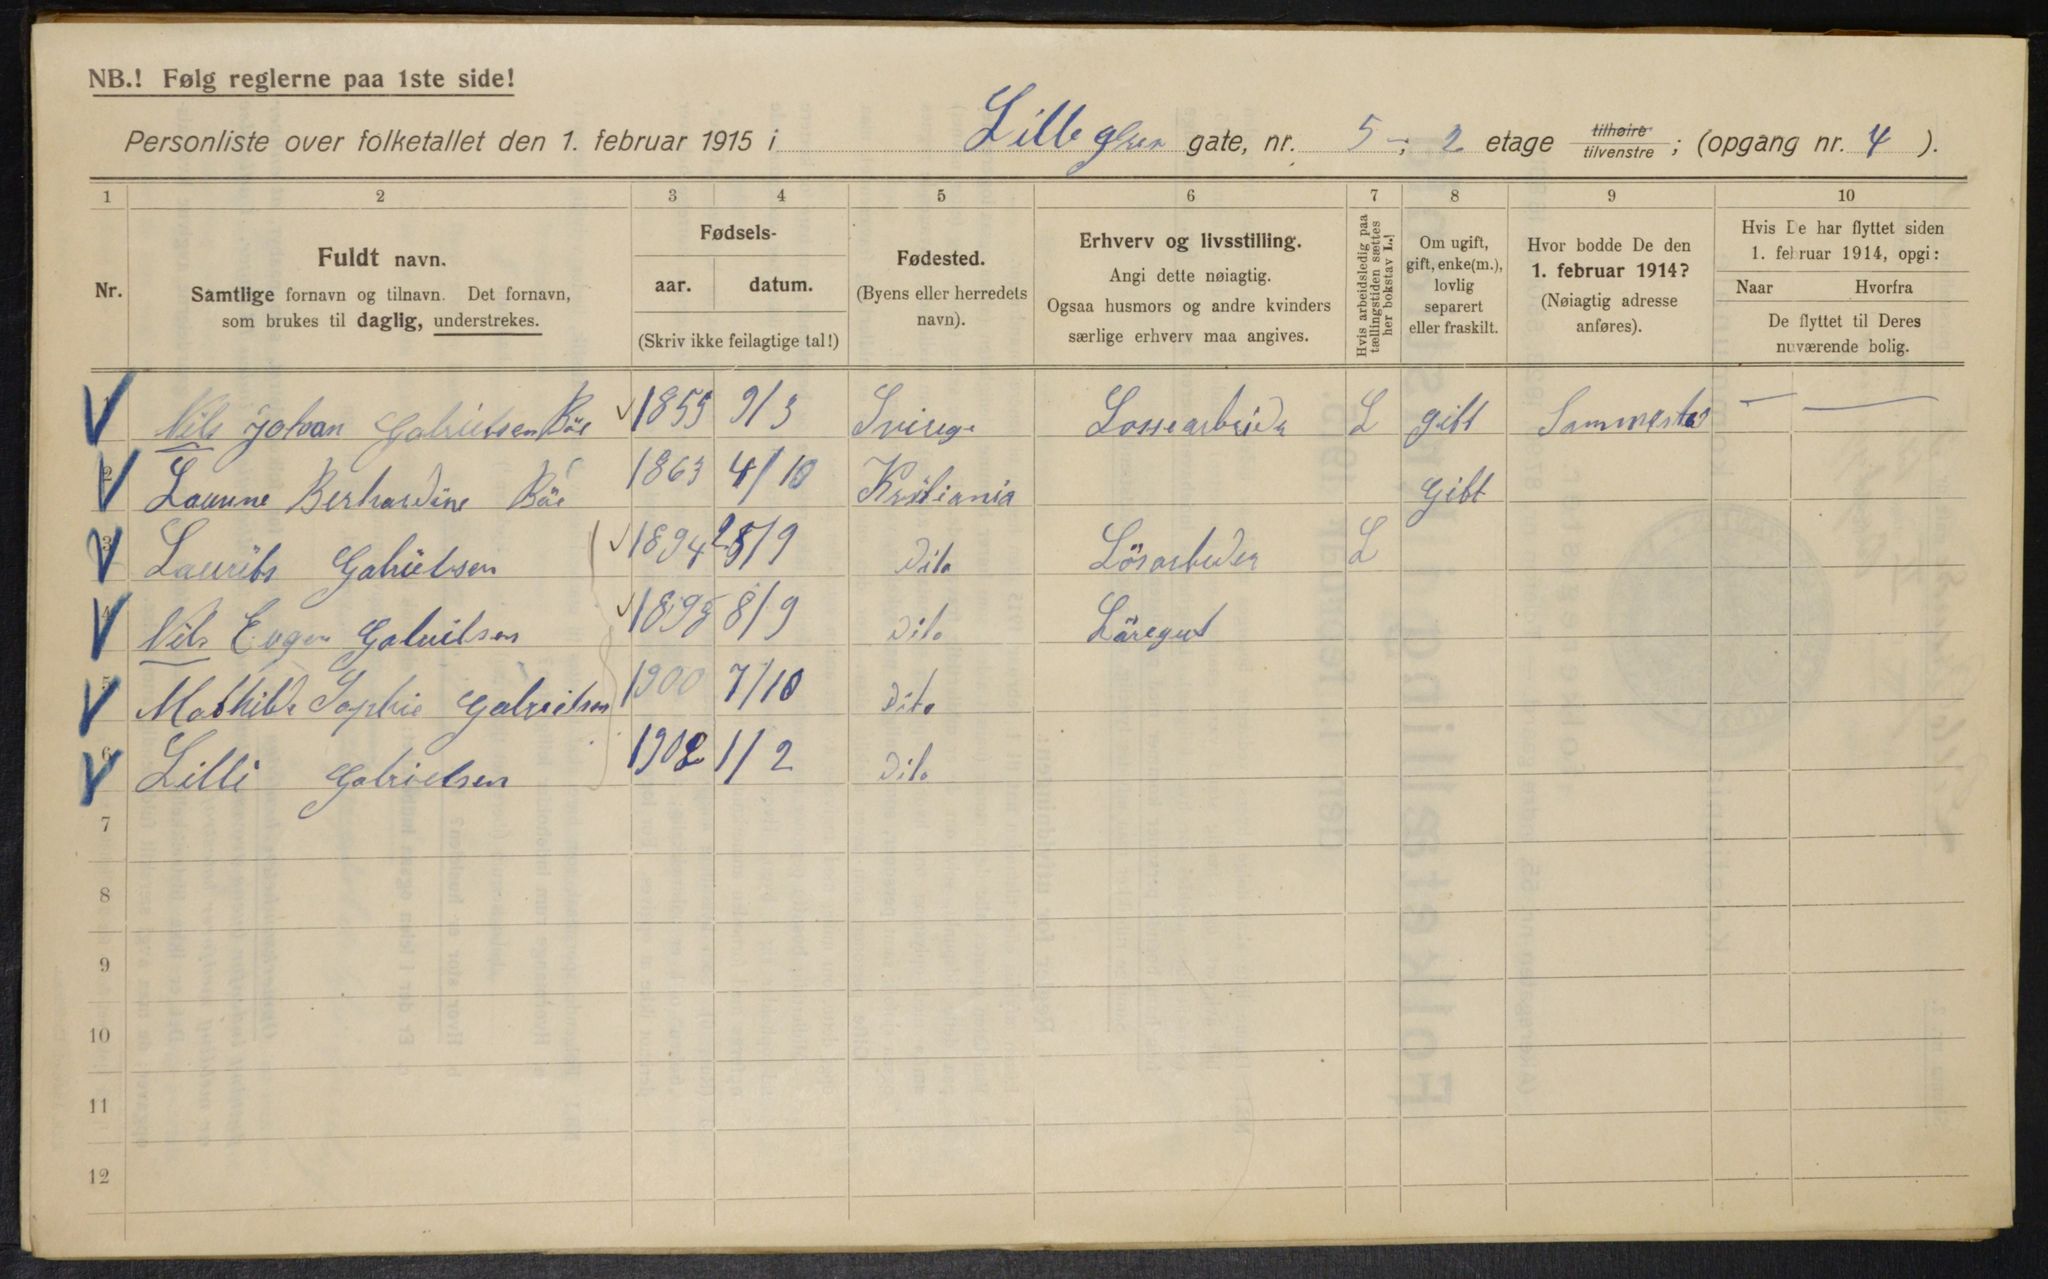 NB.! Følg reglerne paa 1ste side!
Personliste over folketallet den 1. februar 1915 i Lille gate, nr. 5 -; 2 etage tilhøire/tilvenstre ; (opgang nr. 4 ).
1 2 3 4 5 6 7 8 9 10
Nr.
Fuldt navn.
Samtlige fornavn og tilnavn. Det fornavn,
som brukes til daglig, understrekes.
Fødsels-
aar. datum.
(Skriv ikke feilagtige tal!)
Fødested.
(Byens eller herredets
navn).
Erhverv og livsstilling.
Angi dette nøiagtig.
Ogsaa husmors og andre kvinders
særlige erhverv maa angives.
Hvis arbeidsledig paa
tællingstiden sættes
her bokstav L.!
Om ugift,
gift, enke(m.),
lovlig
separert
eller fraskilt.
Hvor bodde De den
1. februar 1914?
(Nøiagtig adresse
anføres).
Hvis De har flyttet siden
1. februar 1914, opgi:
Naar Hvorfra
De flyttet til Deres
nuværende bolig.
1 Nils Johan Gabrielsen Böe 1853 9/3 Sverige Lossearbeider L gift Sammested — —
2 Laurine Berhardine Böe 1863 4/10 Kristiania Gift
3 Laurits Gabrielsen 1894 28/9 dito Lösarbeider L
4 Nils Eugen Gabrielsen 1898 8/9 dito Läregut
5 Mathilde Sophie Gabrielsen 1900 7/10 dito
6 Lilli Gabrielsen 1902 1/2 dito
7
8
9
10
11
12